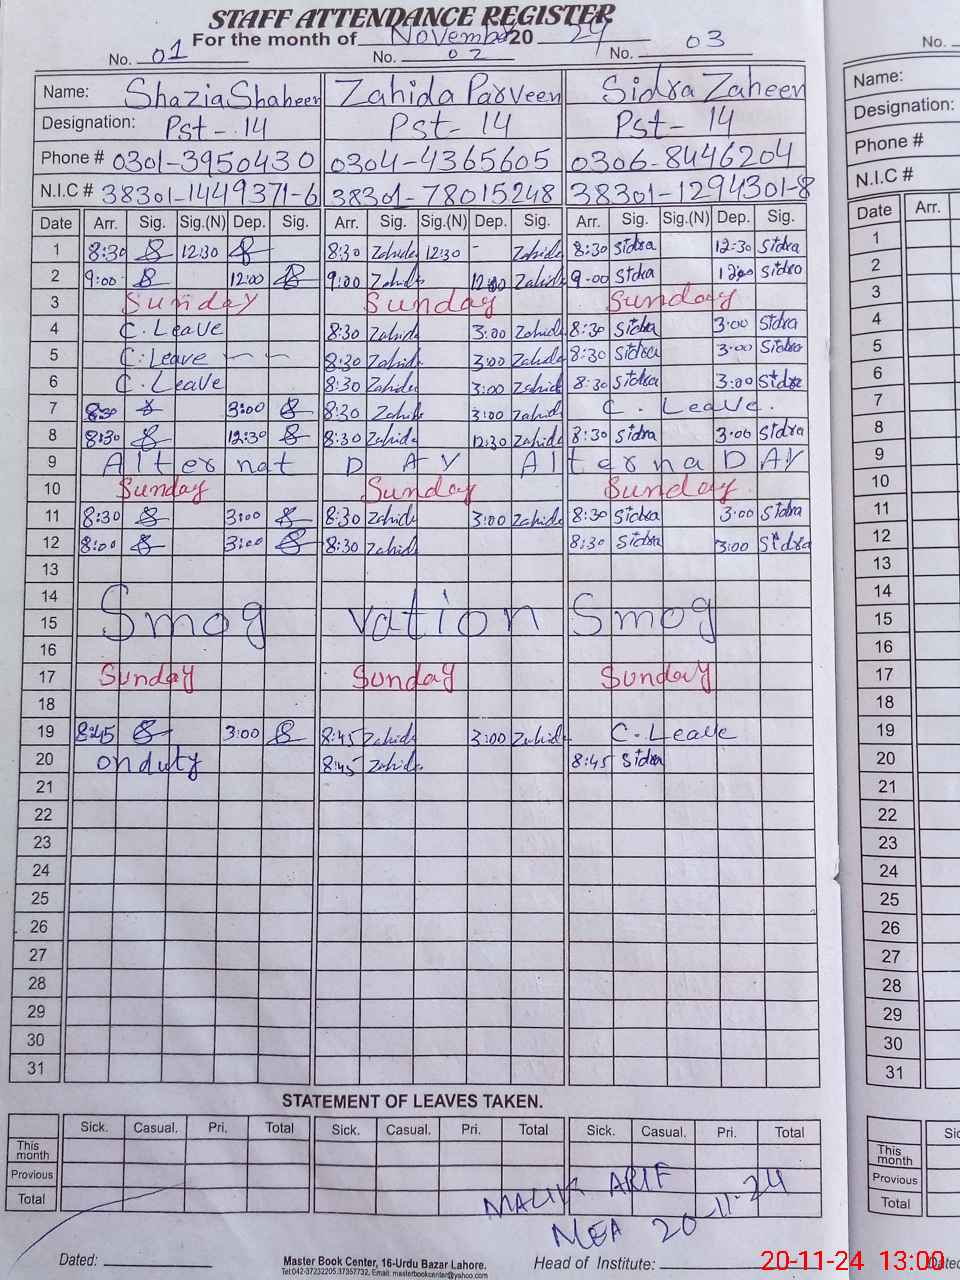 STAFF ATTENDANCE REGISTER
For the month of November 20 24
No. 01 No. 02 No. 03 No.
Name: Shazia Shaheen Zahida Parveen Sidra Zaheen Name:
Designation: Pst-14 Pst-14 Pst-14 Designation:
Phone # 0301-3950430 0304-4365605 0306-8446204 Phone #
N.I.C # 38301-1449371-6 38301-78015248 38301-1294301-8 N.I.C #
Date Arr. Sig. Sig.(N) Dep. Sig. Arr. Sig. Sig.(N) Dep. Sig. Arr. Sig. Sig.(N) Dep. Sig. Date Arr.
1 8:30 12:30 8:30 Zahida 12:30 - Zahida 8:30 Sidra 12:30 Sidra 1
2 9:00 12:00 9:00 Zahida 12:00 Zahida 9:00 Sidra 12:00 Sidra 2
3 Sunday Sunday Sunday 3
4 C. Leave 8:30 Zahida 3:00 Zahida 8:30 Sidra 3:00 Sidra 4
5 C. Leave 8:30 Zahida 3:00 Zahida 8:30 Sidra 3:00 Sidra 5
6 C. Leave 8:30 Zahida 3:00 Zahida 8:30 Sidra 3:00 Sidra 6
7 8:30 3:00 8:30 Zahida 3:00 Zahida C. Leave. 7
8 8:30 12:30 8:30 Zahida 12:30 Zahida 8:30 Sidra 3:00 Sidra 8
9 Alternat DAY Alterna DAY 9
10 Sunday Sunday Sunday 10
11 8:30 3:00 8:30 Zahida 3:00 Zahida 8:30 Sidra 3:00 Sidra 11
12 8:00 3:00 8:30 Zahida 8:30 Sidra 3:00 Sidra 12
13 13
14 14
15 Smog vation Smog 15
16 16
17 Sunday Sunday Sunday 17
18 18
19 8:45 3:00 8:45 Zahida 3:00 Zahida C. Leave 19
20 onduty 8:45 Zahida 8:45 Sidra 20
21 21
22 22
23 23
24 24
25 25
26 26
27 27
28 28
29 29
30 30
31 31
STATEMENT OF LEAVES TAKEN.
Sick. Casual. Pri. Total Sick. Casual. Pri. Total Sick. Casual. Pri. Total
This month This month
Previous Previous
Total Total
MALIK ARIF
MEA 20-11-24
Dated: Master Book Center, 16-Urdu Bazar Lahore. Head of Institute:
Tel:042-37232205,37357732, Email: masterbookcenter@yahoo.com
20-11-24 13:00